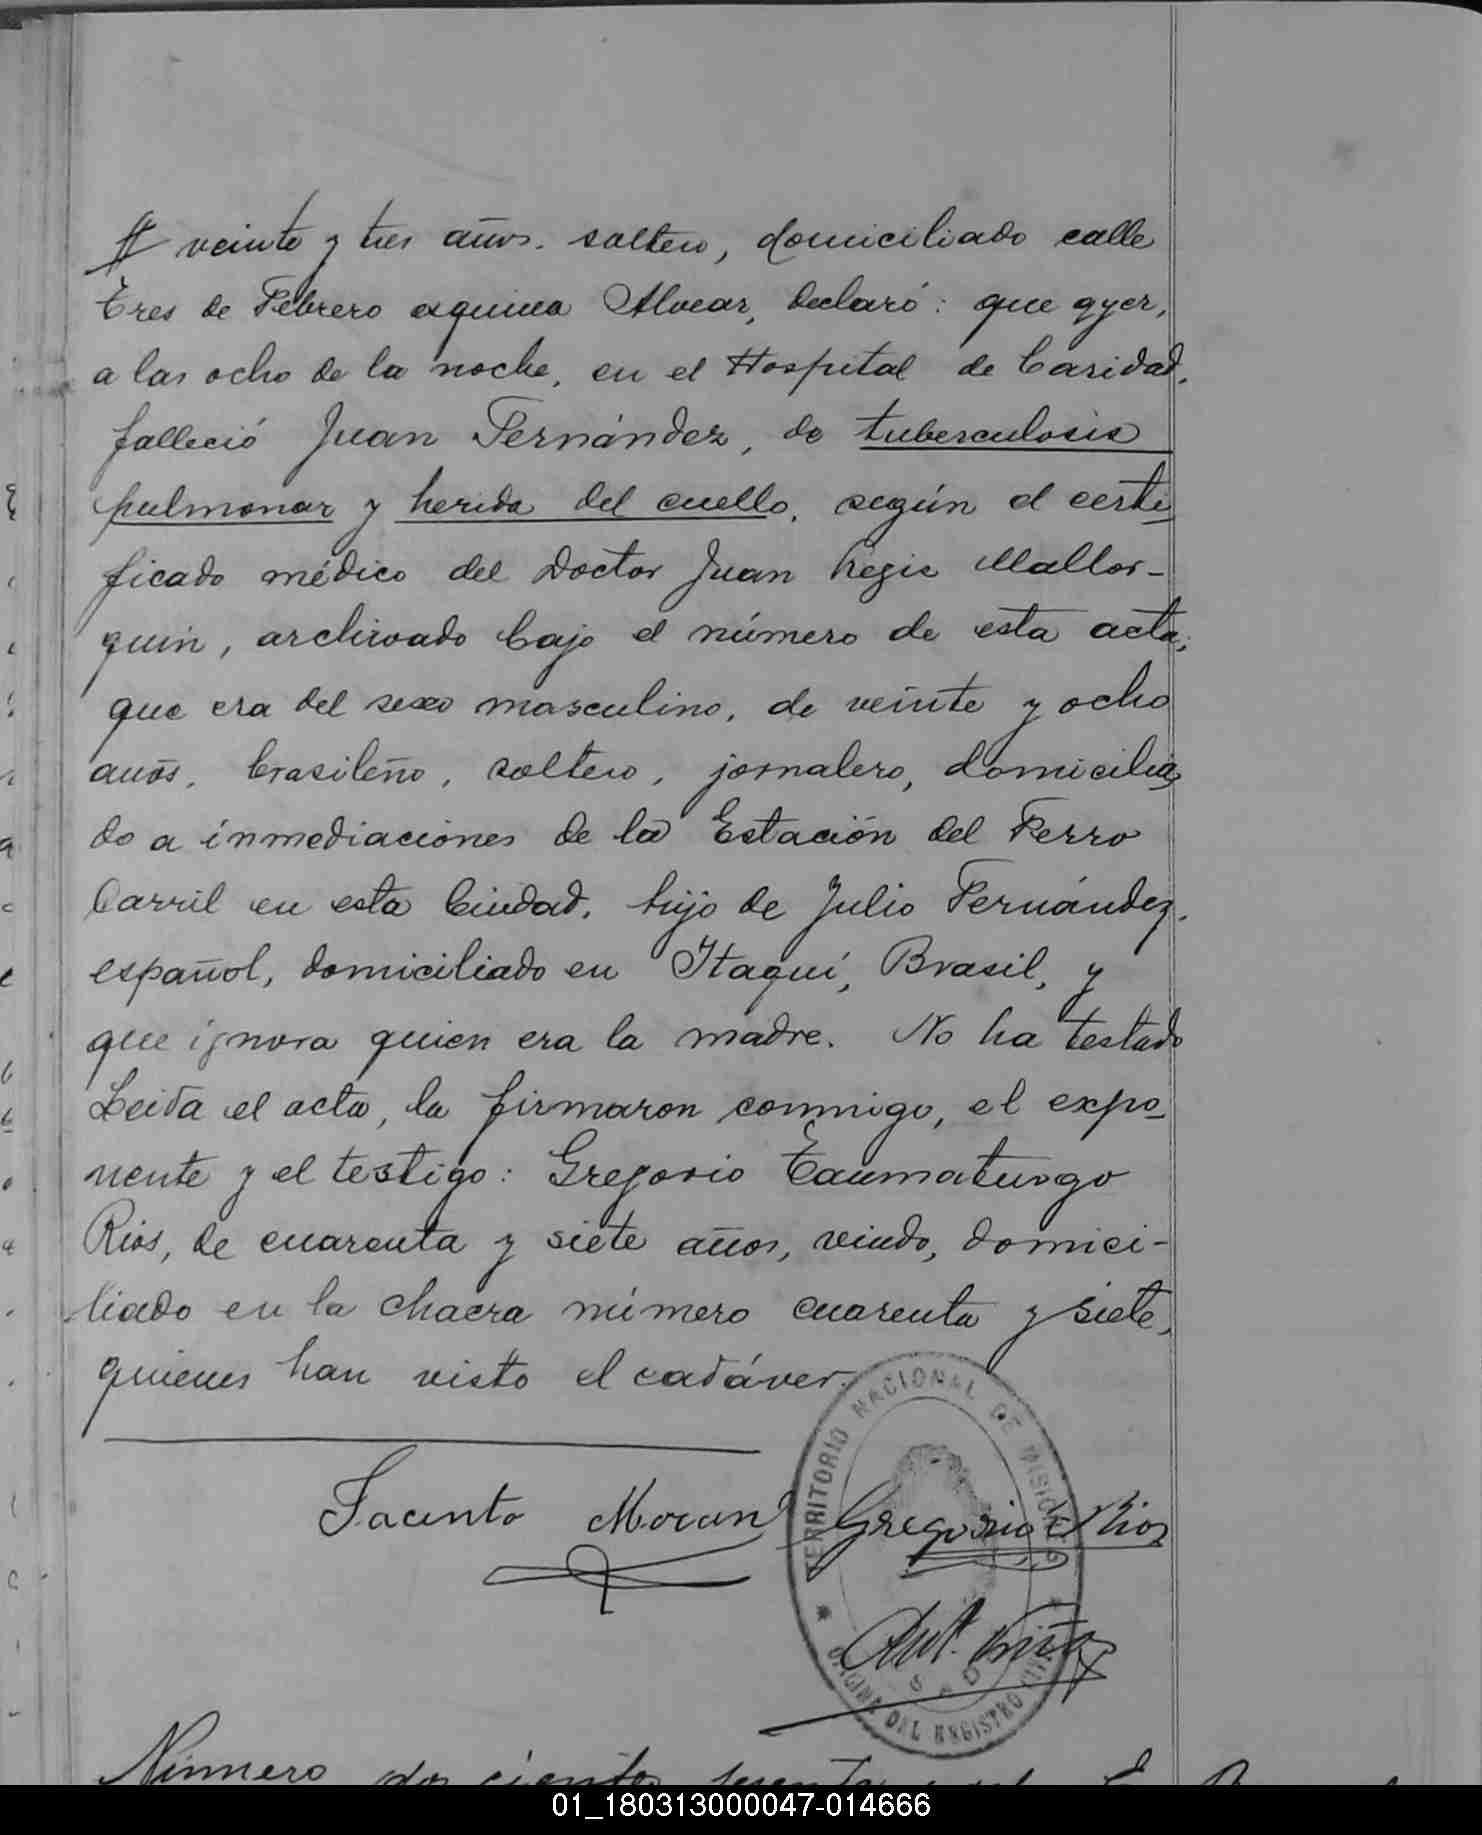 veinte y tres años. soltero, domiciliado calle
Tres de Febrero esquina Alvear, declaró: que ayer,
a las ocho de la noche, en el Hospital de Caridad,
falleció Juan Fernández, de tuberculosis
pulmonar y herida del cuello, según el certi
ficado médico del Doctor Juan Regis Mallor-
quin, archivado bajo el número de esta acta;
que era del sexo masculino, de veinte y ocho
años, brasileño, soltero, jornalero, domicilia
do a inmediaciones de la Estación del Ferro
Carril en esta Ciudad, hijo de Julio Fernández,
español, domiciliado en Itaquí, Brasil, y
que ignora quien era la madre. No ha testado
Leida el acta, la firmaron conmigo, el expo_
nente y el testigo: Gregorio Taumaturgo
Rios, de cuarenta y siete años, viudo, domici-
liado en la chacra número cuarenta y siete,
quienes han visto el cadáver.
TERRITORIO NACIONAL DE MISIONES
Jacinto Moran Gregorio T Rios
OFICINA DEL REGISTRO CIVIL
Número dos cientos
01_180313000047-014666